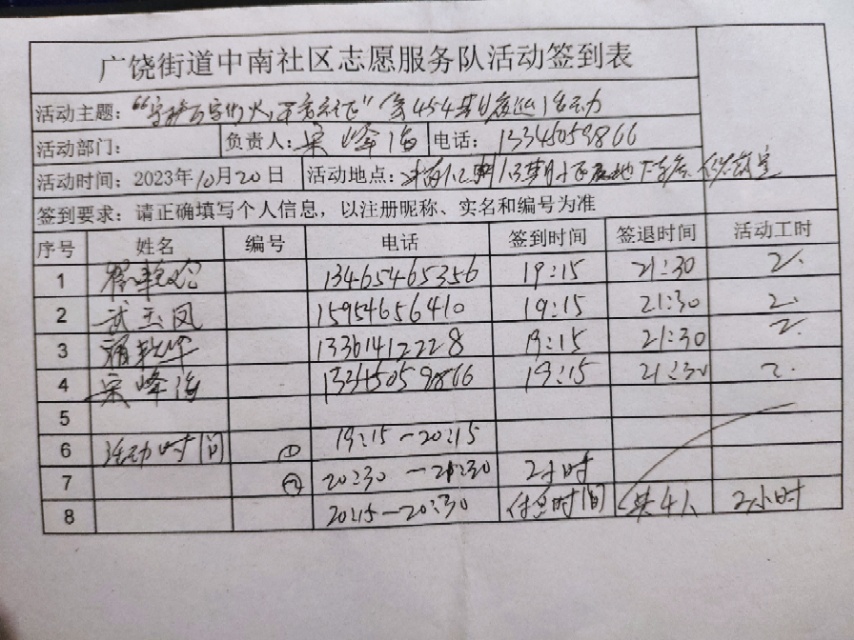 广饶街道中南社区志愿服务队活动签到表
活动主题：“守护万家灯火，平安社区”第454期夜巡活动
活动部门： 负责人：宋峰海 电话：13345059866
活动时间：2023年10月20日 活动地点：
签到要求：请正确填写个人信息，以注册昵称、实名和编号为准
序号 姓名 编号 电话 签到时间 签退时间 活动工时
1 13465465356 19:15 21:30 2.
2 武玉凤 15954656410 19:15 21:30 2.
3 13361412228 19:15 21:30 2.
4 宋峰海 13345059866 19:15 21:30 2.
5
6 活动时间 ① 19:15-20:15
7 ② 20:30-21:30 2小时
8 20:15-20:30 休息时间 共4人 2小时